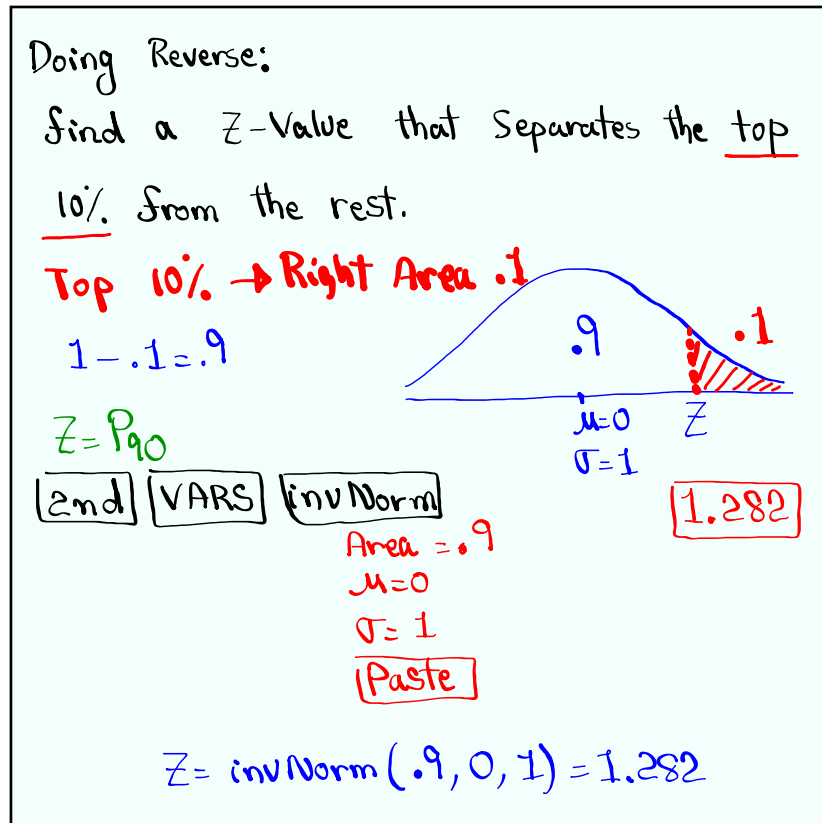 Doing Reverse:
find a Z-Value that Separates the top
10% from the rest.
Top 10% → Right Area .1
1 - .1 = .9
.9
.1
μ=0
Z
σ=1
Z = P90
2nd VARS invNorm
1.282
Area = .9
μ=0
σ= 1
Paste
Z= invNorm(.9, 0, 1) = 1.282